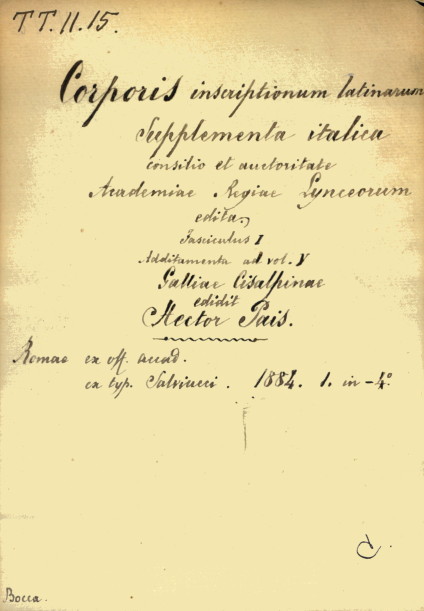 TT.II.15.
Corporis inscriptionum latinarum
Supplementa italica
consilio et auctoritate
Academiae Regiae Lynceorum
edita.
Fasciculus I
Additamenta ad vol. V
Galliae Cisalpinae
edidit
Hector Pais.
Romae ex off. accad.
ex typ. Salviucci. 1884. 1. in-4°.
Bocca.